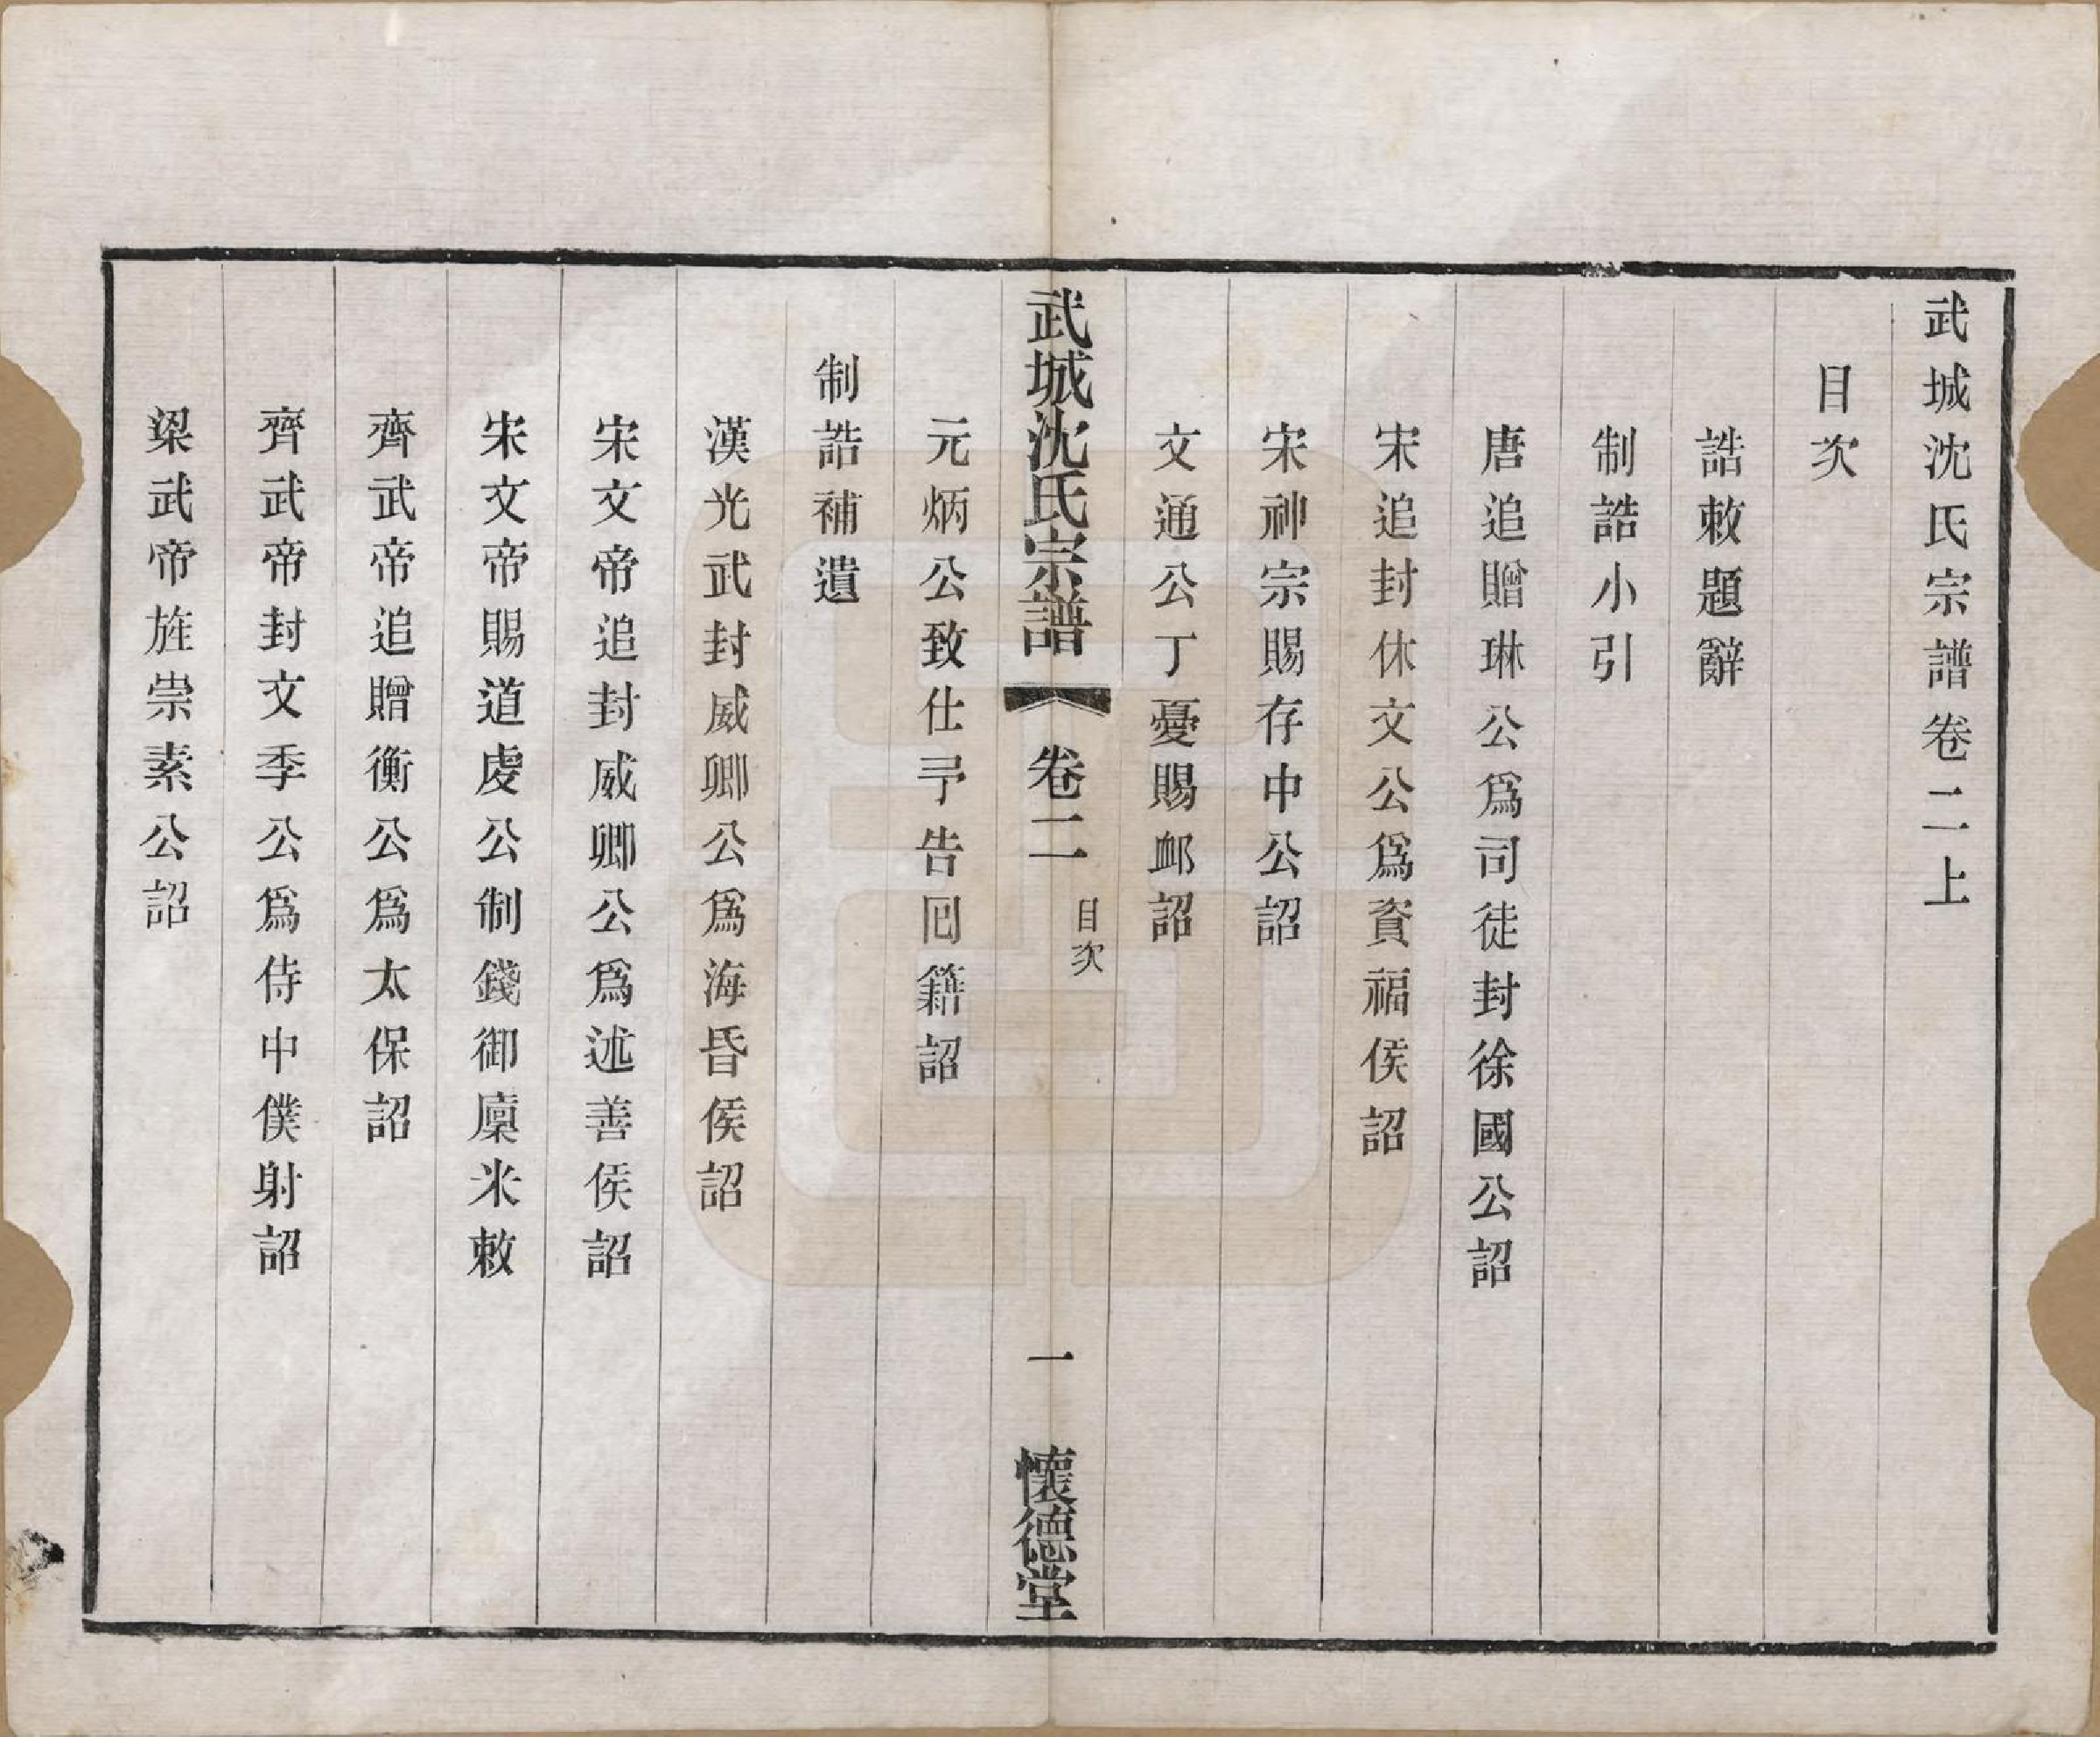 武城沈氏宗譜卷二上
目次
誥敕題辭
制誥小引
唐追贈琳公爲司徒封徐國公詔
宋追封休文公爲資福侯詔
宋神宗賜存中公詔
文通公丁憂賜卹詔
武城沈氏宗譜
卷二
目次
一
懷德堂
元炳公致仕予告回籍詔
制誥補遺
漢光武封威卿公爲海昏侯詔
宋文帝追封威卿公爲述善侯詔
宋文帝賜道虔公制錢御廩米敕
齊武帝追贈衡公爲太保詔
齊武帝封文季公爲侍中僕射詔
梁武帝旌崇素公詔